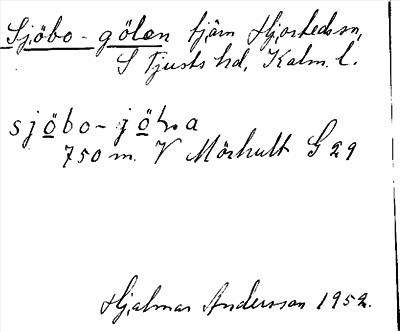 Sjöbo-gölen tjärn Hjorteds sn,
S Tjusts hd, Kalm. l.
sjöbo-jöᶅa
750 m. V Mörhult G 29
Hjalmar Andersson 1952.